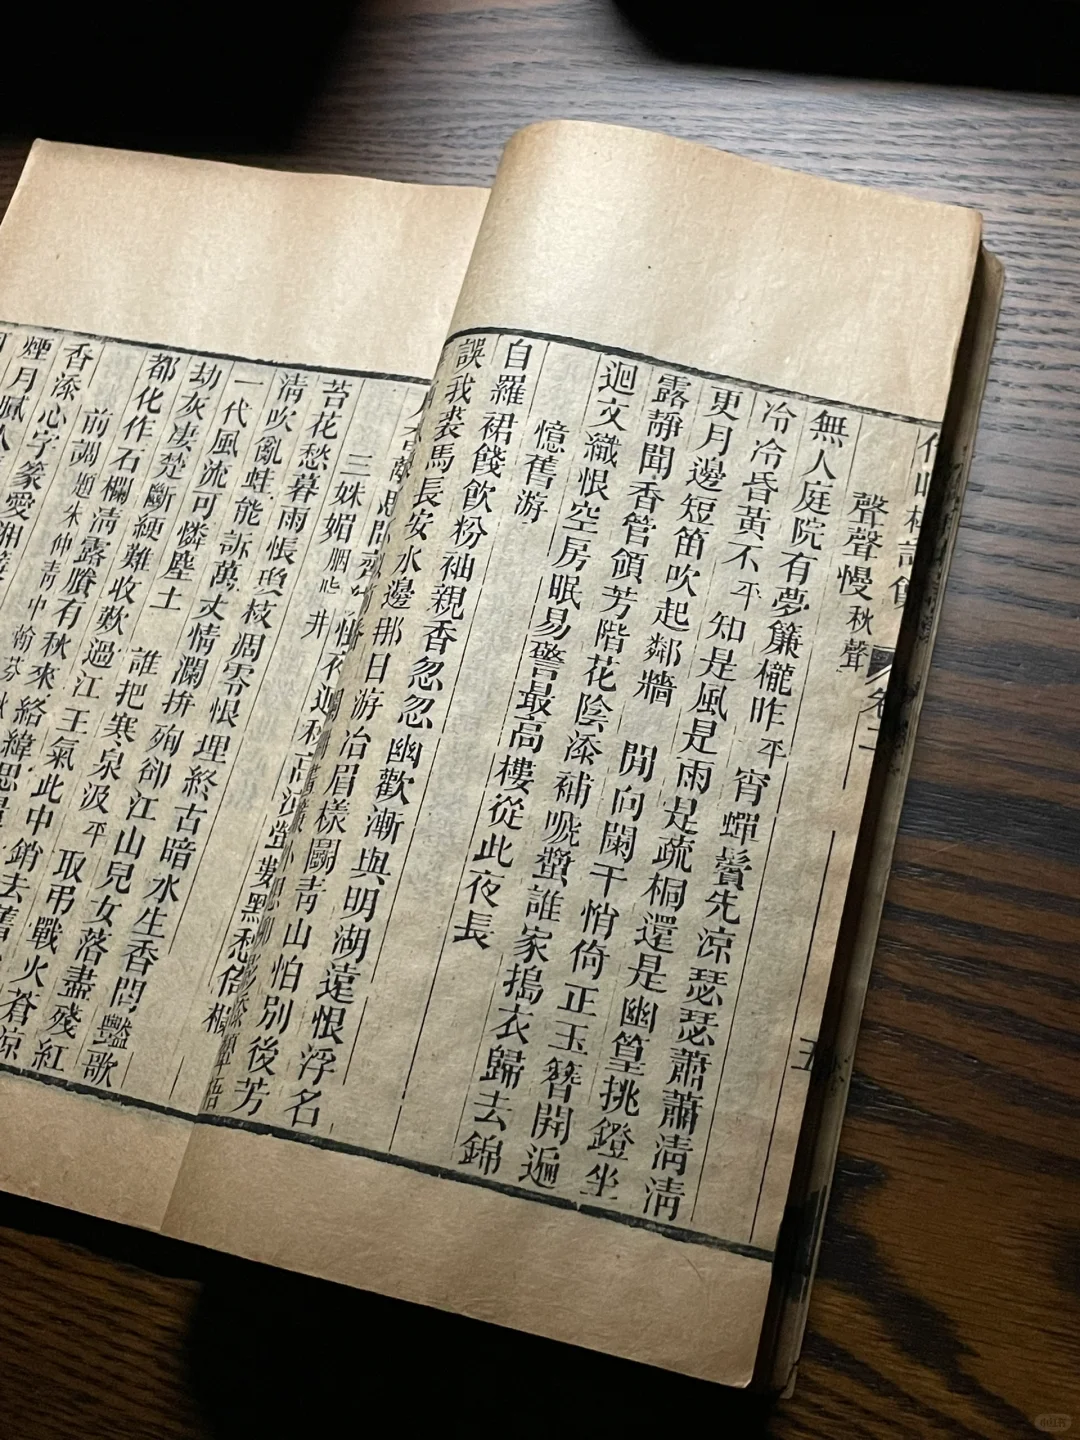 卷二
五
聲聲慢秋聲
無人庭院有夢簾櫳昨平宵蟬鬢先涼瑟瑟蕭蕭淸淸
冷冷昏黃不平知是風是雨是疏桐還是幽篁挑鐙坐
更月邊短笛吹起鄰牆 閒向闌干悄倚正玉簪開遍
露靜聞香管領芳階花陰添補喓螿誰家搗衣歸去錦
迴文織恨空房眠易警最高樓從此夜長
憶舊游
白羅裙餞飮粉袖親香忽忽幽歡漸與明湖遠恨浮名
誤我裘馬長安水邊那日游冶眉樣鬬靑山怕別後芳
三姝媚 井
苔花愁暮雨悵負枝凋零恨埋終古暗水生香問豔歌
淸吹亂蛙能訴萬丈情瀾拚殉卻江山兒女落盡殘紅
一代風流可憐塵土 誰把寒泉汲平取弔戰火蒼涼
劫灰凄楚斷綆難收歎過江王氣此中銷去舊
都化作石欄淸露賸有秋來絡緯思
前調題朱仲靑中翰芬秋
香添心字篆愛
煙月膩人